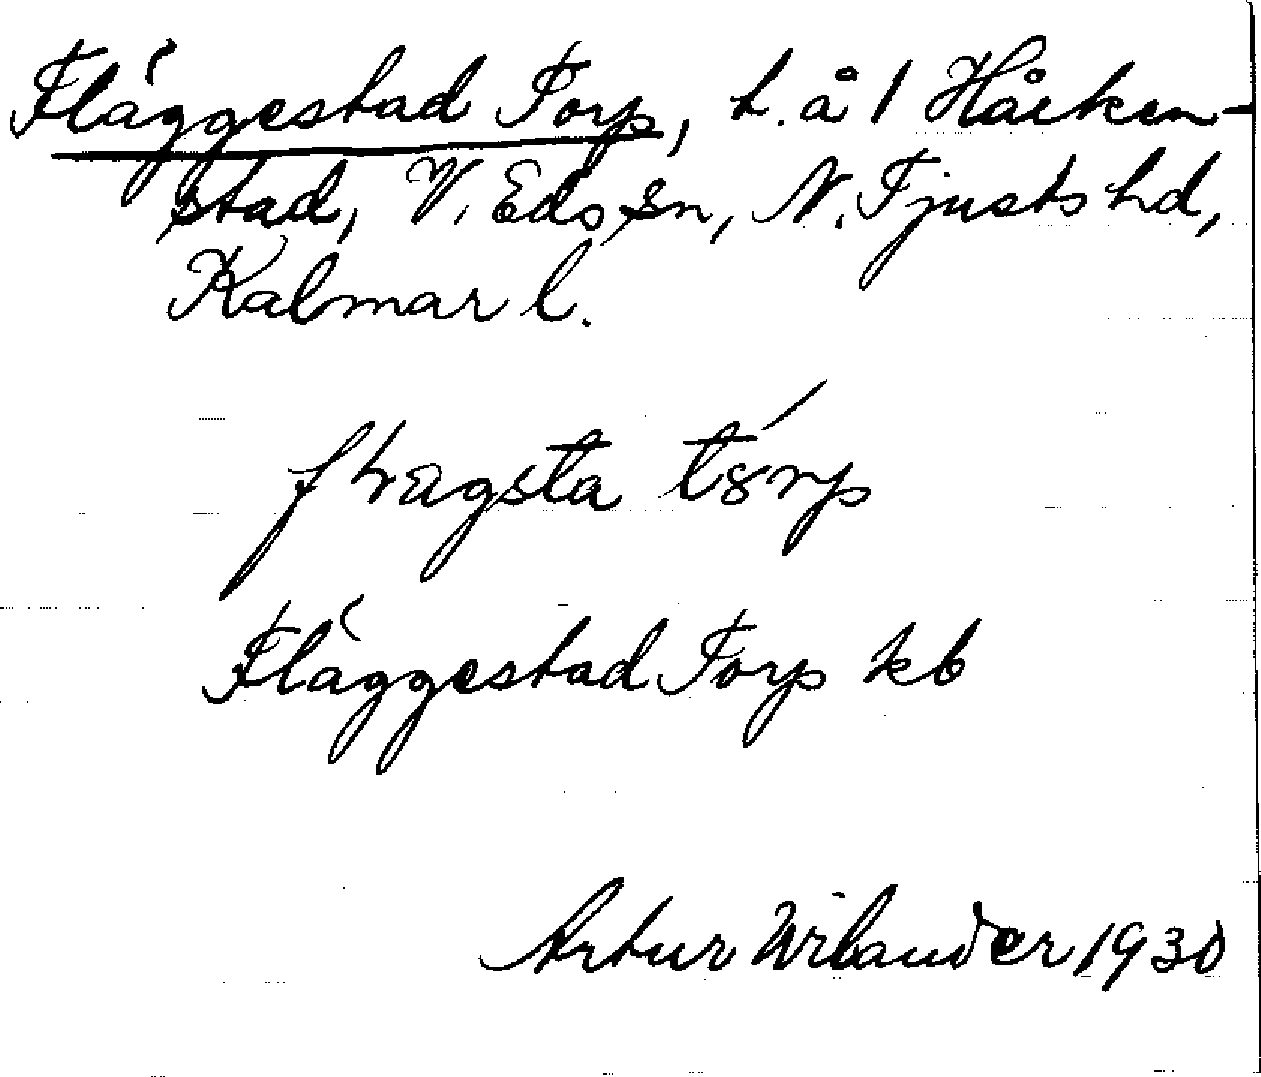 Fläggestad Torp, t. å 1 Håcken-
stad, V. Eds sn, N. Tjusts hd,
Kalmar l.
flagsta törp
Fläggestad Torp kb
Artur Wilander 1930